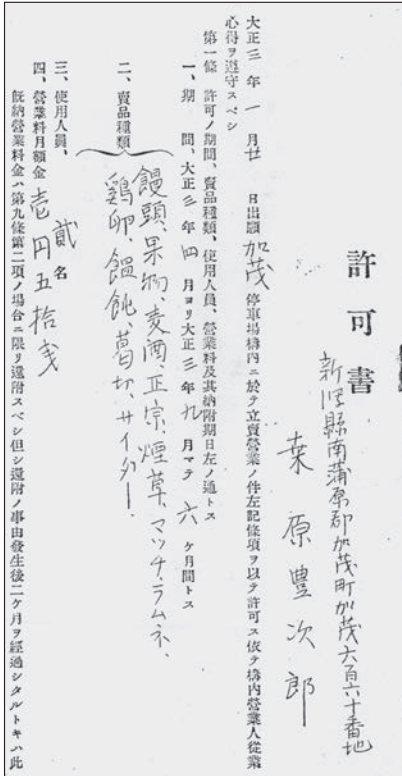 許可書
新潟縣南蒲原郡加茂町加茂六百六十番地
桒原豊次郎
大正三年一月廿日出願加茂停車場構内ニ於テ立賣營業ノ件左記條項ヲ以テ許可ス依テ構内營業人從業
心得ヲ遵守スベシ
第一條 許可ノ期間、賣品種類、使用人員、營業料及其納附期日左ノ通トス
一、期間、大正三年四月ヨリ大正三年九月マテ六ケ月間トス
二、賣品種類
饅頭、果物、麦酒、正宗、煙草、マッチ、ラムネ、
鶏卵、饂飩、葛切、サイダー、
三、使用人員、貳名
四、營業料月額金壱円五拾戋
既納營業料金ハ第九條第二項ノ場合ニ限リ還附スベシ但シ還附ノ事由發生後二ケ月ヲ經過シタルトキハ此